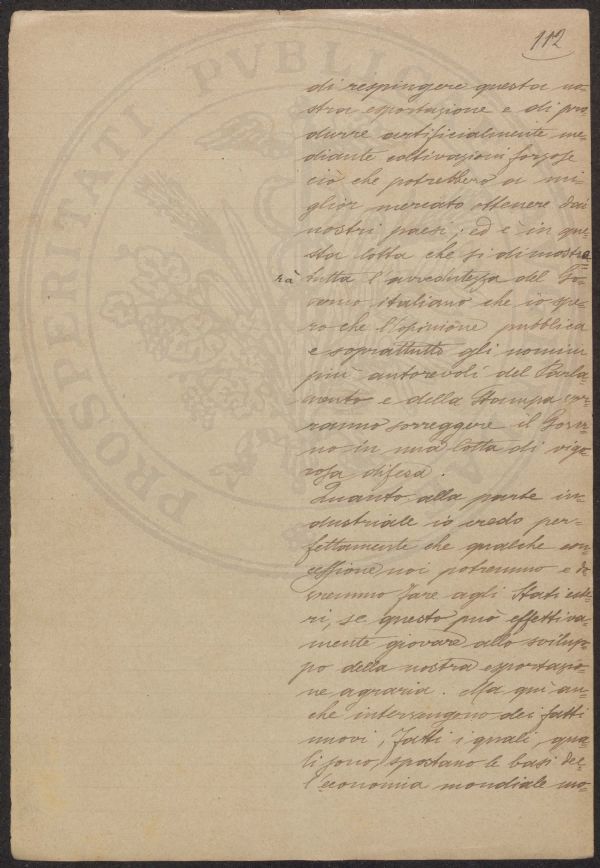 112
di respingere questa no=
stra esportazione e di pro
durre artificialmente me=
diante coltivazioni forzose
ciò che potrebbero a mi=
glior mercato ottenere dai
nostri paesi; ed è in que=
sta lotta che si dimostre
rà tutta l'avvedutezza del Go=
verno italiano che io spe=
ro che l'opinione pubblica
e soprattutto gli uomini
più autorevoli del Parla=
mento e della Stampa vor=
ranno sorreggere il Gover=
no in una lotta di vigo=
rosa difesa.
Quanto alla parte in=
dustriale io credo per=
fettamente che qualche con=
cessione noi potremmo e do
vremmo fare agli Stati este=
ri, se questo può effettiva=
mente giovare allo svilup=
po della nostra esportazio=
ne agraria. Ma quì an=
che intervengono dei fatti
nuovi, fatti i quali, qua=
li sono, spostano le basi del=
l'economia mondiale mo=
PROSPERITATI PVBLIC